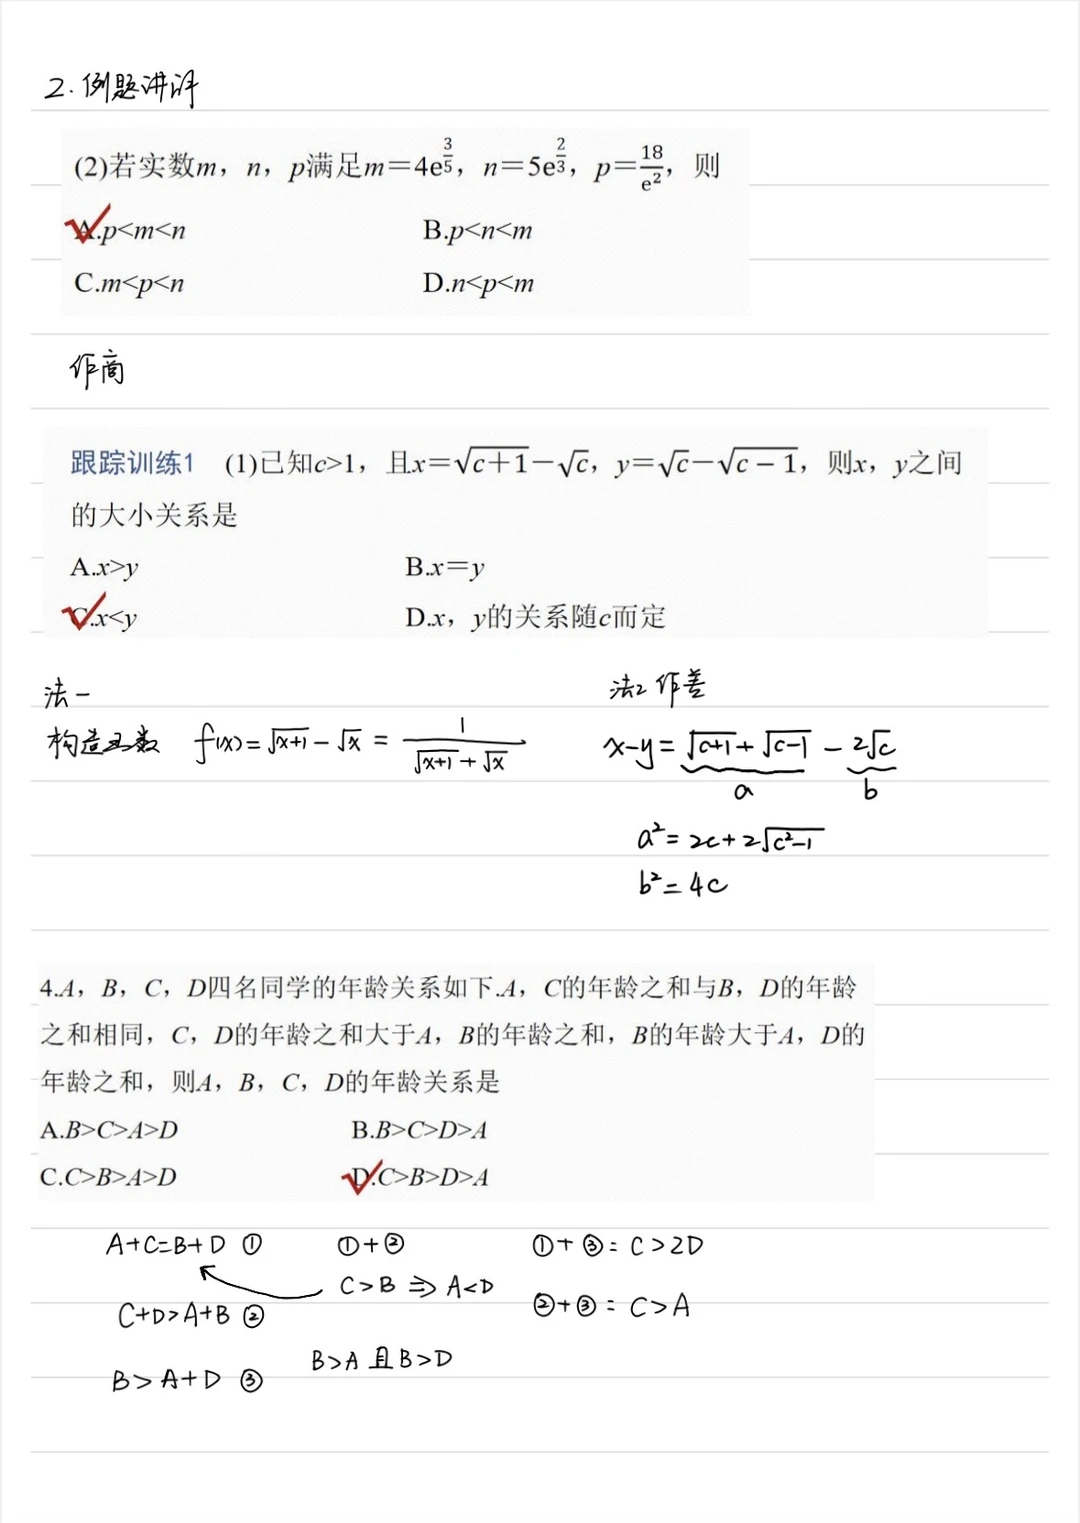 2.例题讲评
(2)若实数m，n，p满足m=4e^{3/5}，n=5e^{2/3}，p=18/e²，则
A.p<m<n B.p<n<m
C.m<p<n D.n<p<m
作商
跟踪训练1 (1)已知c>1，且x=√(c+1)-√c，y=√c-√(c-1)，则x，y之间
的大小关系是
A.x>y B.x=y
C.x<y D.x，y的关系随c而定
法一
构造函数 f(x)=√(x+1)-√x=1/(√(x+1)+√x)
法2 作差
x-y=√(c+1)+√(c-1)-2√c
a b
a²=2c+2√(c²-1)
b²=4c
4.A，B，C，D四名同学的年龄关系如下.A，C的年龄之和与B，D的年龄
之和相同，C，D的年龄之和大于A，B的年龄之和，B的年龄大于A，D的
年龄之和，则A，B，C，D的年龄关系是
A.B>C>A>D B.B>C>D>A
C.C>B>A>D D.C>B>D>A
A+C=B+D ① ①+② ①+③：C>2D
C>B ⇒ A<D
C+D>A+B ② ②+③：C>A
B>A且B>D
B>A+D ③